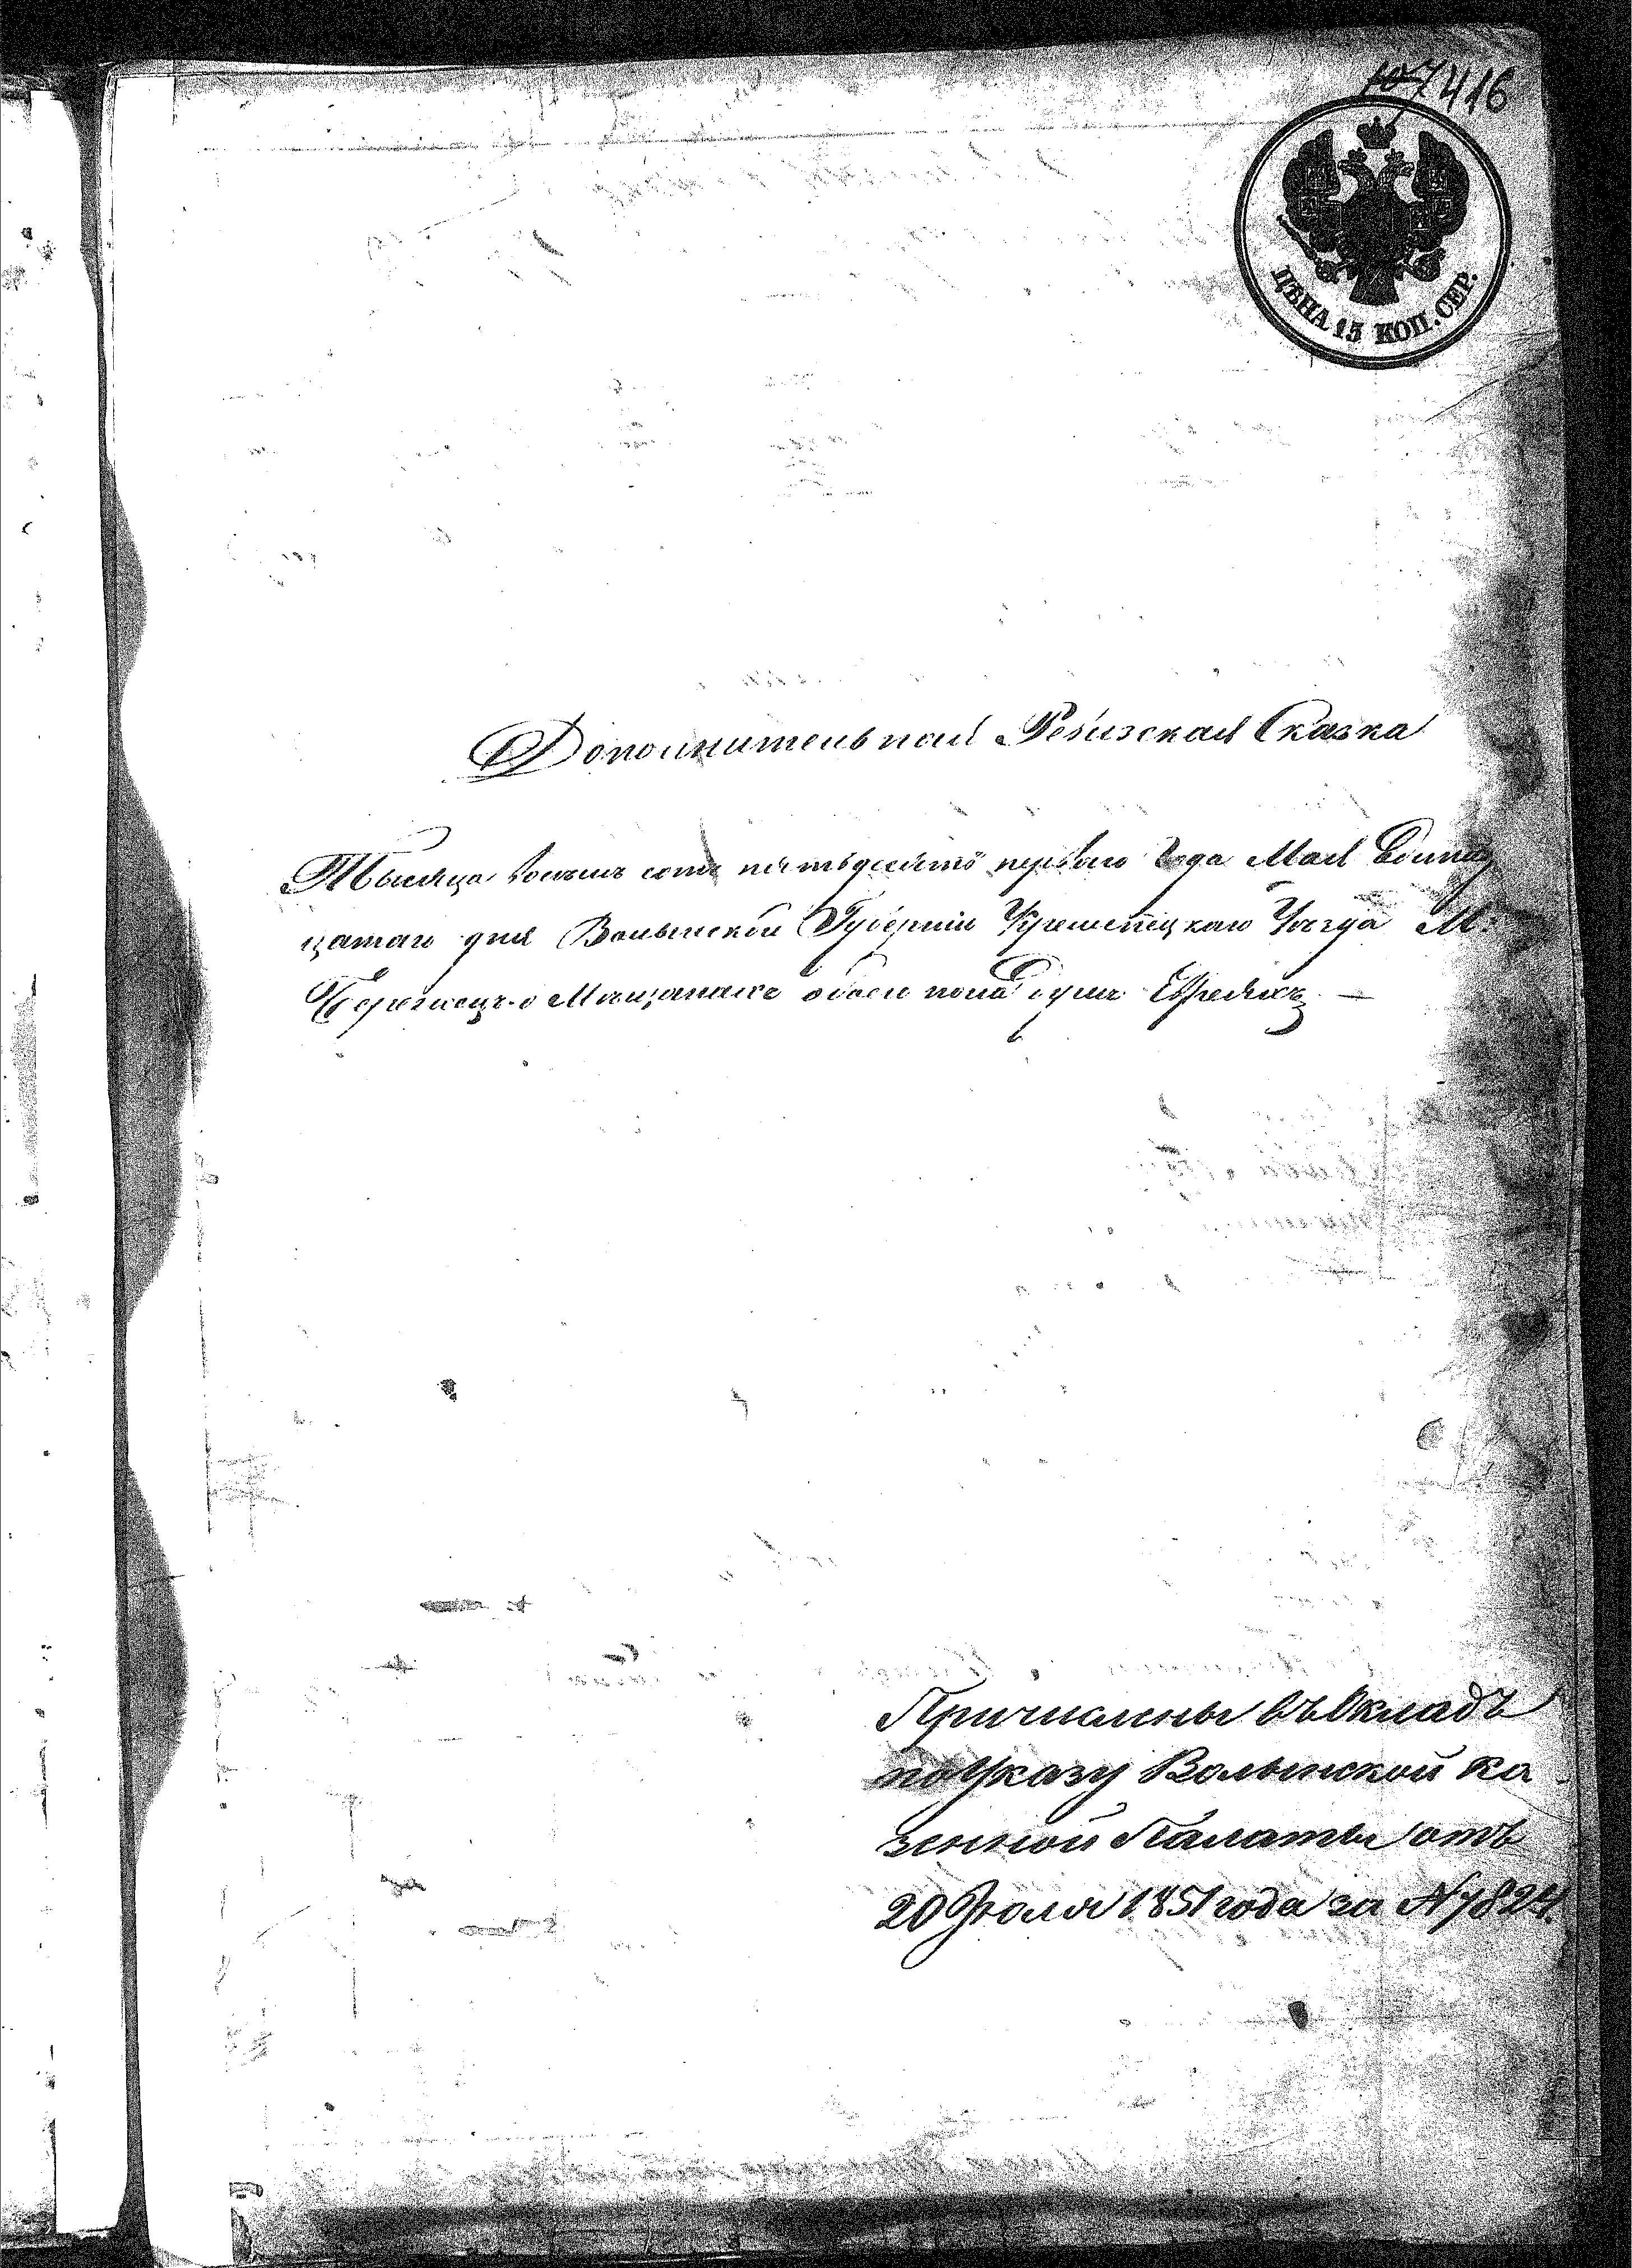 107 416
ЦѢНА 15 КОП. СЕР.
Дополнительная Ревизская Сказка
Тысяца восемь сотъ пятьдесятъ первого Года Мая
цатаго дня Волынской Губерніи Кременецкаго Уѣзда М:
о Мѣщанахъ обоего пола душъ Евреяхъ —
Причислены въ Окладъ
по Указу Волынской Ка
зенной Палаты отъ
20 Іюля 1851 года за N 7824.